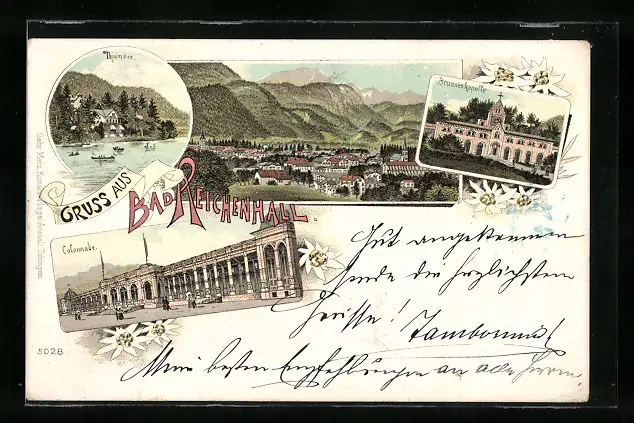 Thumsee.
Brunnenkapelle
GRUSS AUS
BAD REICHENHALL.
Colonnade.
5028
Gut angekommen
sende die herzlichsten
Grüsse!
Meine besten Empfehlungen an alle Herren.